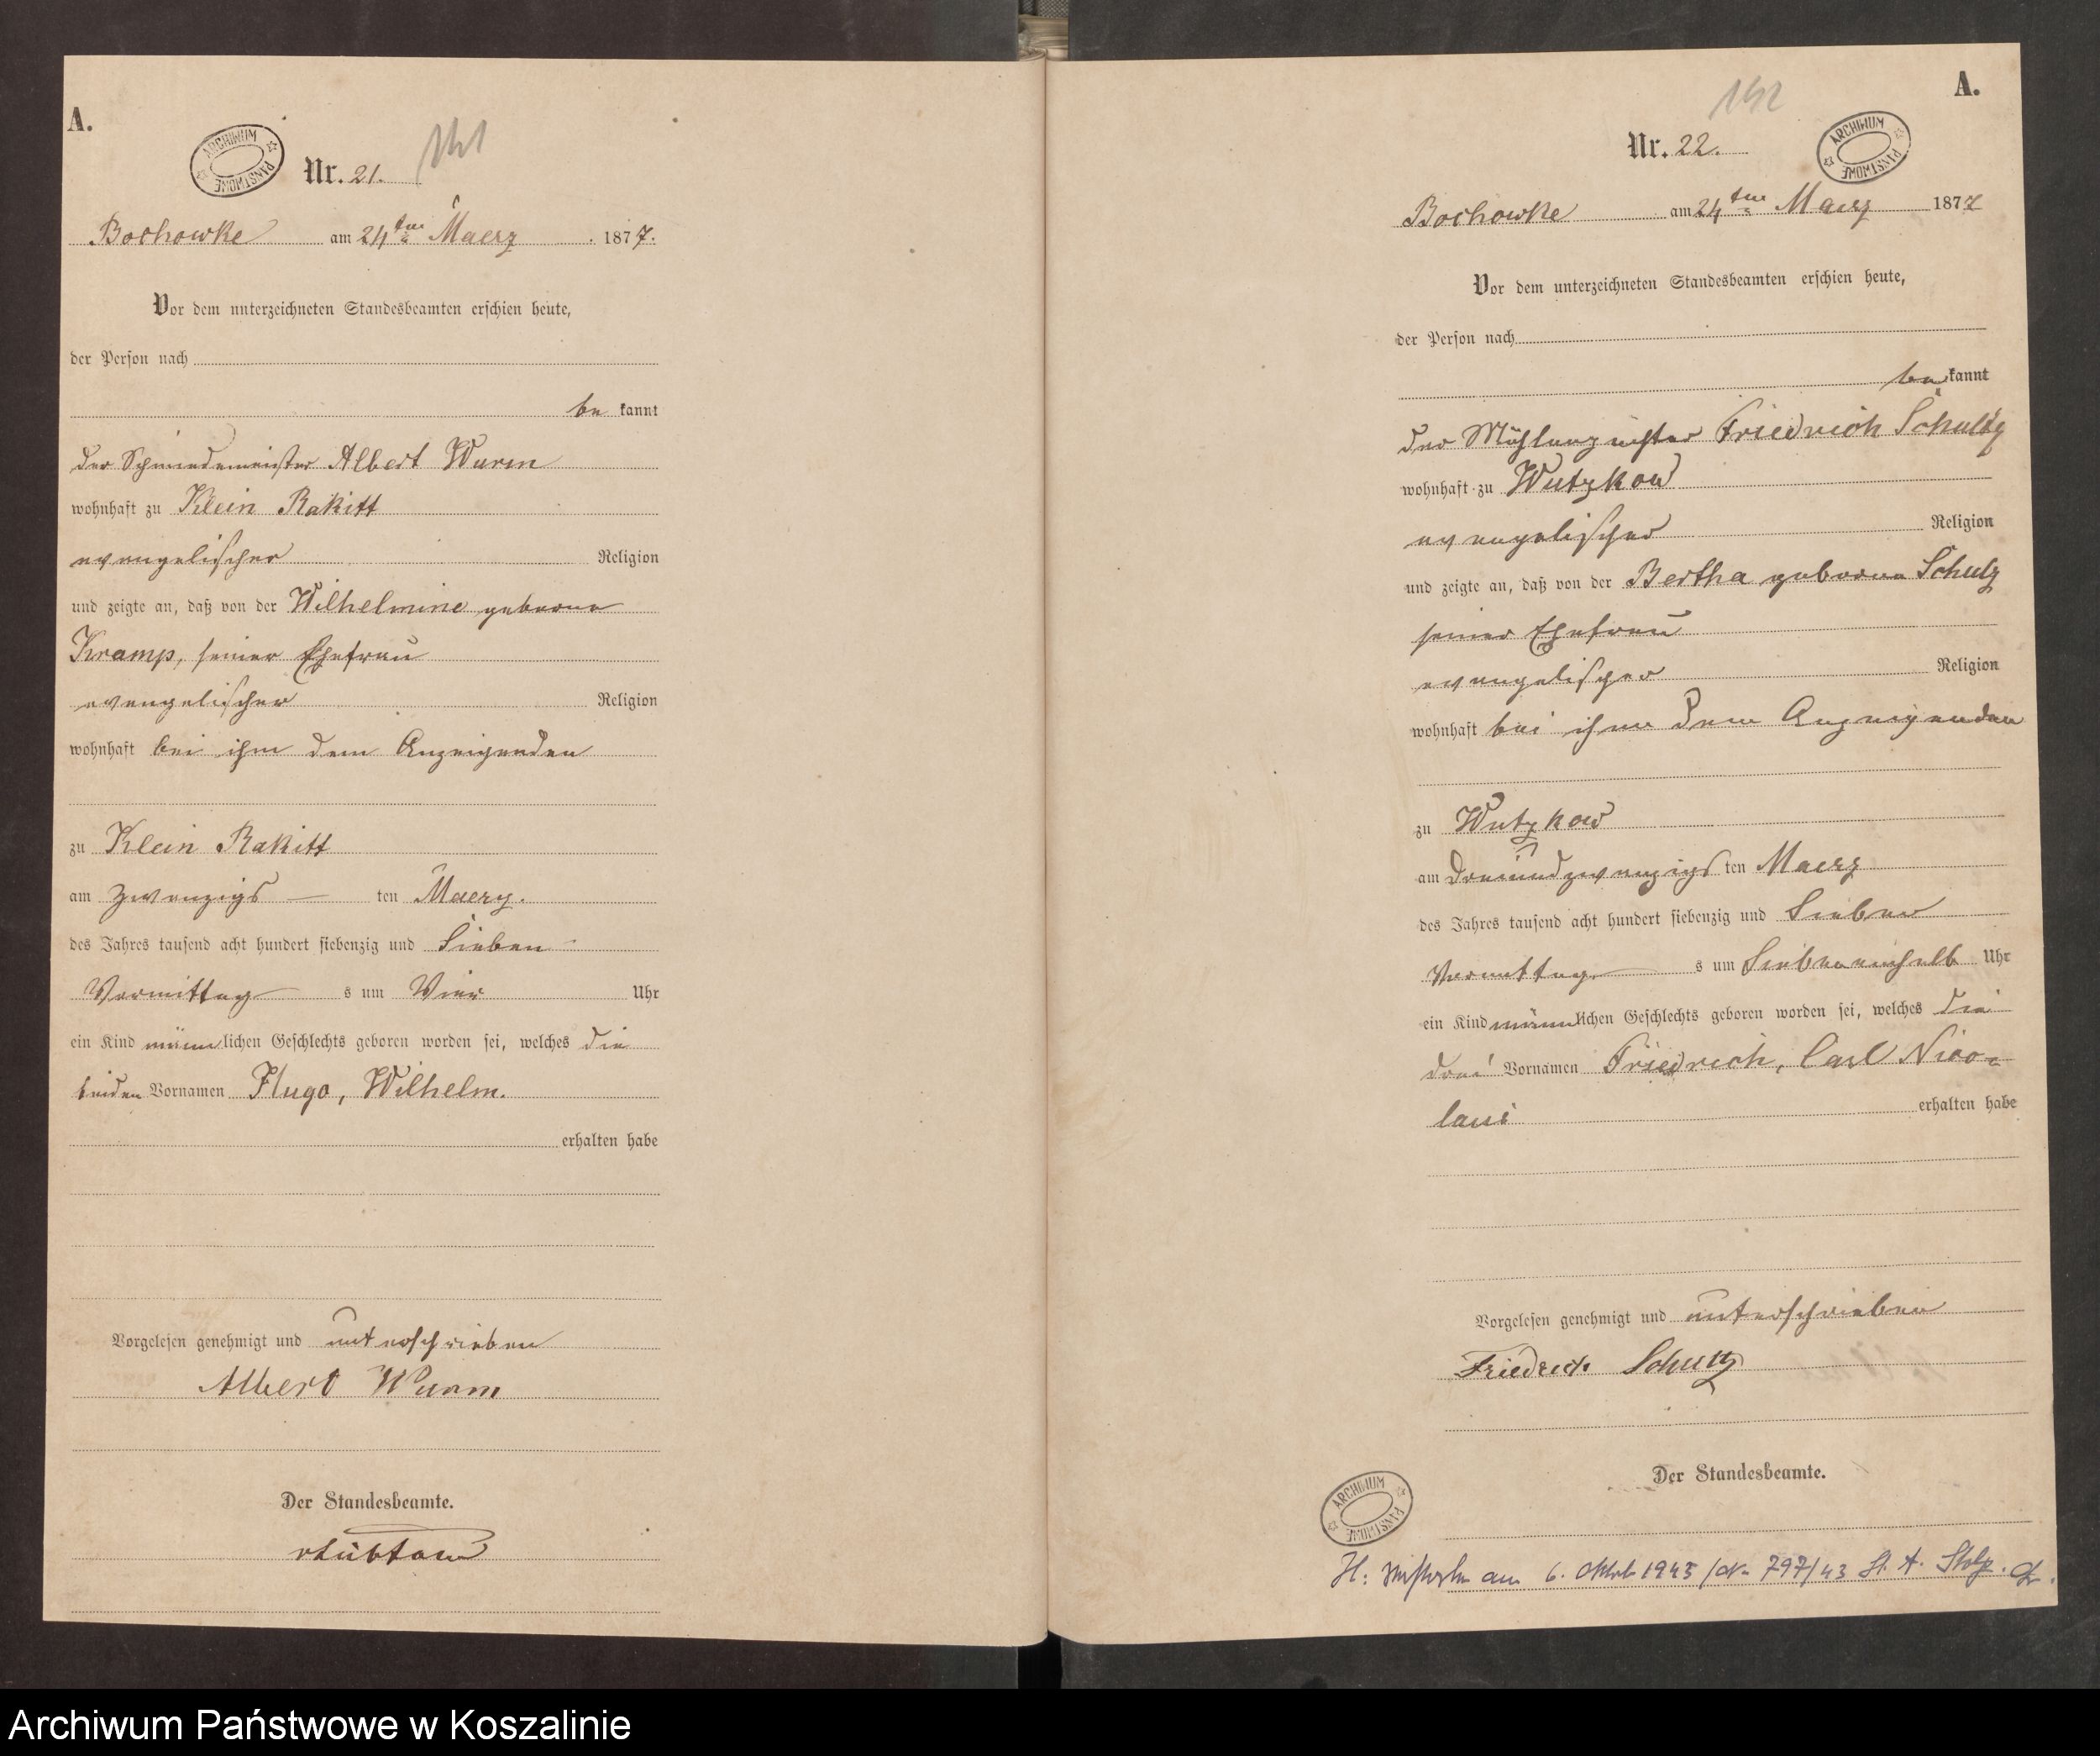 A.
ARCHIWUM PAŃSTWOWE
141
Nr. 21.
Bochowke am 24ten Maerz 1877.
Vor dem unterzeichneten Standesbeamten erschien heute,
der Person nach
be kannt
der Schmiedemeister Albert Wurm
wohnhaft zu Klein Rakitt
evangelischer Religion
und zeigte an, daß von der Wilhelmine geborne
Kramp, seiner Ehefrau
evangelischer Religion
wohnhaft bei ihm dem Anzeigenden
zu Klein Rakitt
am zwanzigs — ten Maerz.
des Jahres tausend acht hundert siebenzig und Sieben
Vormittag s um Vier Uhr
ein Kind männlichen Geschlechts geboren worden sei, welches die
beiden Vornamen Hugo, Wilhelm.
erhalten habe
Vorgelesen genehmigt und unterschrieben
Albert Wurm
Der Standesbeamte.
A.
142
Nr. 22.
ARCHIWUM PAŃSTWOWE
Bochowke am 24ten Maerz 1877
Vor dem unterzeichneten Standesbeamten erschien heute,
der Person nach
be kannt
der Mühlenmeister Friedrich Schultz
wohnhaft zu Wutzkow
evangelischer Religion
und zeigte an, daß von der Bertha geborne Schulz
seiner Ehefrau
evangelischer Religion
wohnhaft bei ihm dem Anzeigenden
zu Wutzkow
am Dreiundzwanzigs ten Maerz
des Jahres tausend acht hundert siebenzig und Sieben
Vormittag s um Siebeneinhalb Uhr
ein Kind männlichen Geschlechts geboren worden sei, welches die
drei Vornamen Friedrich, Carl Nico-
laus erhalten habe
Vorgelesen genehmigt und unterschrieben
Friedrich Schultz
Der Standesbeamte.
ARCHIWUM PAŃSTWOWE
H: am 6. 797/43 St. A. Stolp.
Archiwum Państwowe w Koszalinie